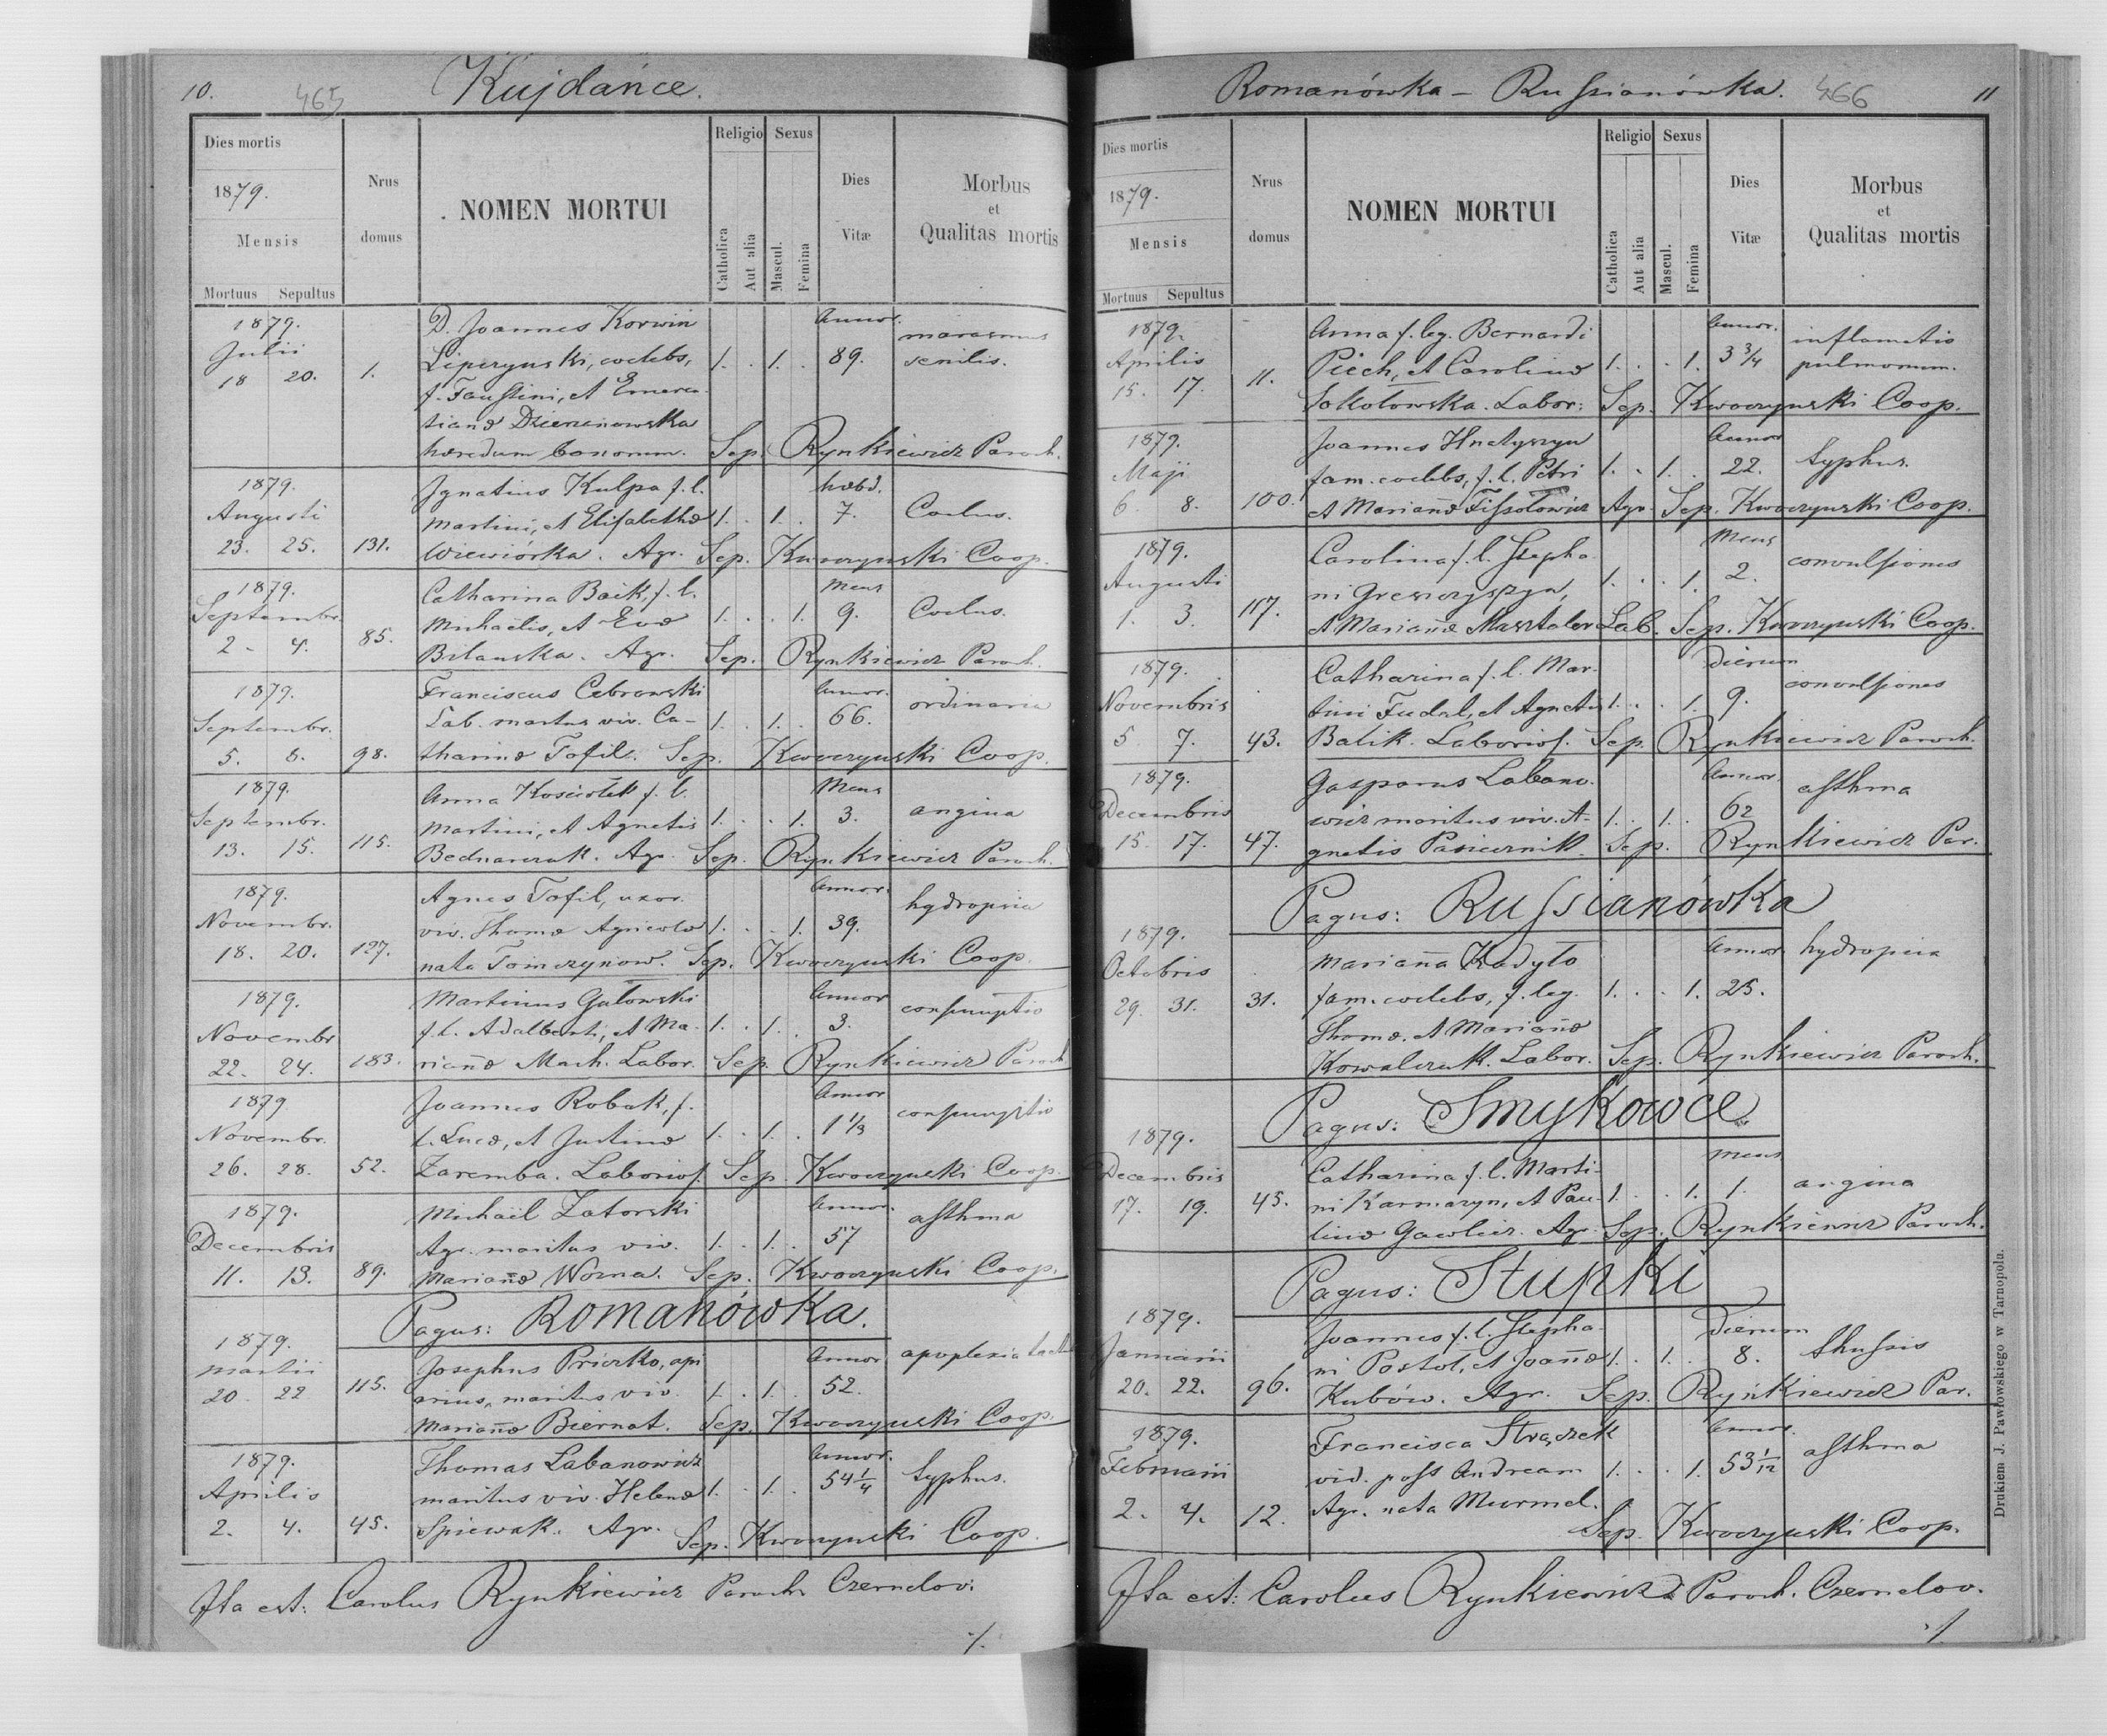 10. 465 Kujdańce.
Dies mortis
1879.
Mensis
Mortuus Sepultus
Nrus domus
NOMEN MORTUI
Religio
Catholica
Aut alia
Sexus
Mascul.
Femina
Dies Vitæ
Morbus et Qualitas mortis
1879. D. Joannes Korwin Annor. marasmus
Julii Liperynski, coelebs, 1. . 1. . 89. senilis.
18 20. 1. f. Faustini, et Emeren-
tianæ Dzierzanowska
hæredum bonorum. Sep. Rynkiewicz Paroch.
1879. Ignatius Kulpa f. l. hebd.
Augusti Martini, et Elisabethæ 1. . 1. . 7. Coelus.
23. 25. 131. Wiewiórka. Agr. Sep. Kwoczynski Coop.
1879. Catharina Baik, f. l. Mens
Septembr. Michaëlis, et Evæ 1. . . 1. 9. Coelus.
2 - 4. 85. Bilanska. Agr. Sep. Rynkiewicz Paroch.
1879. Franciscus Cebrowski Annor. ordinaria
Septembr. Lab. maritus viv. Ca- 1. . 1. . 66.
5. 6. 98. tharinæ Tofil. Sep. Kwoczynski Coop.
1879. Anna Kosciołek f. l. Mens
Septembr. Martini, et Agnetis 1. . . 1. 3. angina
13. 15. 115. Bednarczuk. Agr. Sep. Rynkiewicz Paroch.
1879. Agnes Tofil, uxor. Annor. hydropsia
Novembr. viv. Thomæ Agricolæ 1. . . 1. 39.
18. 20. 127. nata Tomczynow. Sep. Kwoczynski Coop.
1879. Martinus Gutowski Annor consumptio
Novembr f. l. Adalberti, et Ma- 1. . 1. . 3.
22. 24. 183. riannæ Mach. Labor. Sep. Rynkiewicz Paroch
1879 Joannes Robak, f. Annor consumptio
Novembr. l. Lucæ, et Justinæ 1. . 1. . 1 1/3
26. 28. 52. Zaremba. Laborios. Sep. Kwoczynski Coop.
1879. Michaël Zatorski Annor. asthma
Decembris Agr. maritus viv. 1. . 1. . 57
11. 13. 89. Mariannæ Worna. Sep. Kwoczynski Coop.
Pagus: Romanówka.
1879. Josephus Priczko, api Annor apoplexia
Martii arius, maritus viv. 1. . 1. . 52.
20 22 115. Mariannæ Biernat. Sep. Kwoczynski Coop.
1879. Thomas Labanowicz Annor. typhus.
Aprilis maritus viv. Helenæ 1. . 1. . 54 1/4
2. 4. 45. Spiewak. Agr. Sep. Kwoczynski Coop.
Ita est: Carolus Rynkiewicz Paroch. Czernelov.
./.
Romanówka – Russianówka. 466 11
Dies mortis
1879.
Mensis
Mortuus Sepultus
Nrus domus
NOMEN MORTUI
Religio
Catholica
Aut alia
Sexus
Mascul.
Femina
Dies Vitæ
Morbus et Qualitas mortis
1879. Anna f. leg. Bernardi Annor. inflamatio
Aprilis Piech, et Carolinæ 1. . . 1. 3 3/4 pulmonum.
15. 17. 11. Sokołowska. Labor: Sep. Kwoczynski Coop.
1879. Joannes Hnatyszyn Annor
Maji fam. coelebs, f. l. Petri 1. . 1. . 22. typhus.
6. 8. 100. et Mariannæ Tissotowicz Agr. Sep. Kwoczynski Coop.
1879. Carolina f. l. Stepha- Mens convulsiones
Augusti ni Grewczyszyn, 1. . . 1. 2.
1. 3. 117. et Mariannæ Masztaler Lab. Sep. Kwoczynski Coop.
1879. Catharina f. l. Mar- Dierum convulsiones
Novembris tini Fudal, et Agnetis 1. . . 1. 9.
5 7. 43. Balik. Laborios. Sep. Rynkiewicz Paroch.
1879. Gasparus Labano- Annor. asthma
Decembris wicz maritus viv. A- 1. . 1. . 62
15. 17. 47. gnetis Pasiecznik. Sep. Rynkiewicz Par.
Pagus: Russianówka
1879. Marianna Kadyło Annor hydropsia
Octobris fam. coelebs, f. leg. 1. . . 1. 25.
29. 31. 31. Thomæ, et Mariannæ
Kowalczuk. Labor. Sep. Rynkiewicz Paroch.
Pagus: Smykowce
1879. Catharina f. l. Marti- Mens
Decembris ni Karmazyn, et Pau- 1. . . 1. 1. angina
17. 19. 45. linæ Gawlicz. Agr. Sep. Rynkiewicz Paroch.
Pagus: Stupki
1879. Joannes f. l. Stepha- Dierum
Januarii ni Postoł, et Joannæ 1. . 1. . 8. thussis
20. 22. 96. Kubów. Agr. Sep. Rynkiewicz Par.
1879. Francisca Straczek Annor. asthma
Februarii vid. post Andream 1. . . 1. 53 1/12
2. 4. 12. Agr. nata Murmel.
Sep. Kwoczynski Coop.
Ita est: Carolus Rynkiewicz Paroch. Czernelov.
./.
Drukiem J. Pawłowskiego w Tarnopolu.